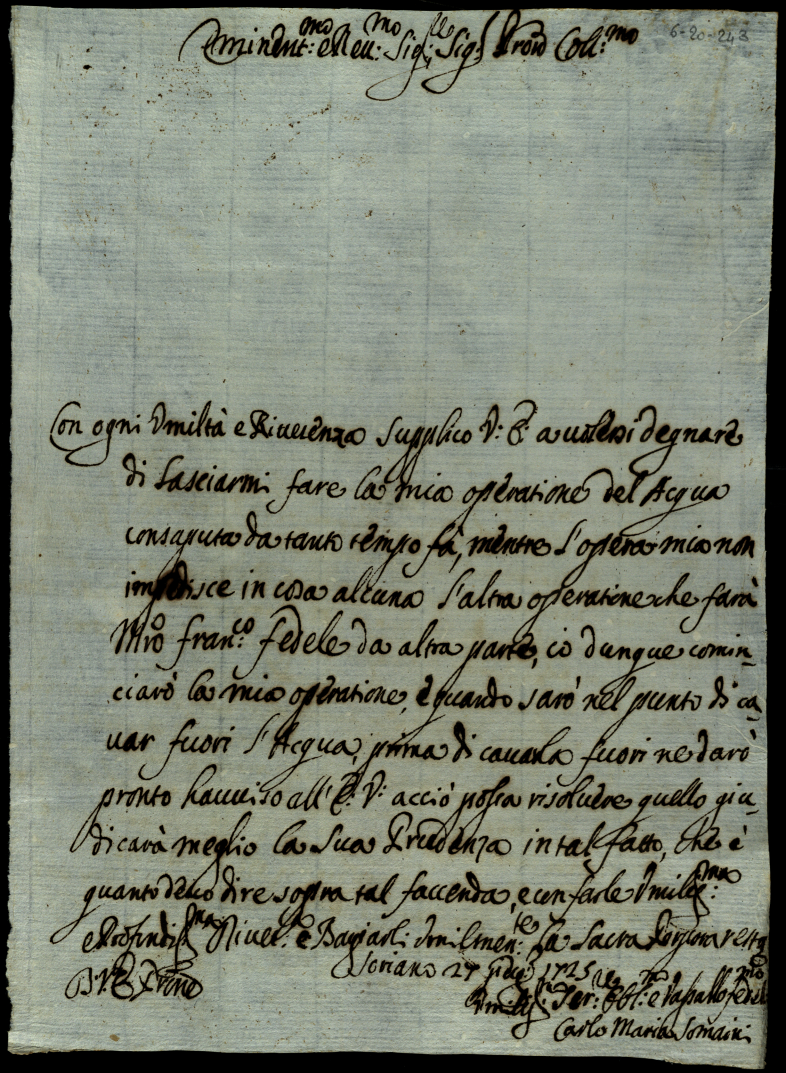 6-20-243
Eminent:mo e Reu:mo Sig:re Sig:re Prone Coll:mo
Con ogni Vmiltà e Riuerenza Supplico V: E: a uolersi degnare
di Lasciarmi fare la mia operatione del Acqua
consaputa da tanto tempo fà, mentre l'opera mia non
impedisce in cosa alcuna l'altra operatione che farà
Mro Fran:co Fedele da altra parte, io dunque comin-
ciarò la mia operatione, e quando sarò nel punto di ca-
uar fuori l'Acqua, prima di cauarla fuori ne darò
pronto hauuiso all'E: V: acciò possa risoluere quello giu-
dicarà meglio la Sua Prudenza in tal fatto, che è
quanto deuo dire sopra tal faccenda, e con farle Vmiliss:ma
e Profondiss:ma Riuer:za e Baciarli Vmilmen:te La Sacra Porpora resto
Soriano 27 1725
D: V: E: Prone
Vmiliss:mo Ser:re Obl:mo e Vassallo fedel
Carlo Maria Somaini